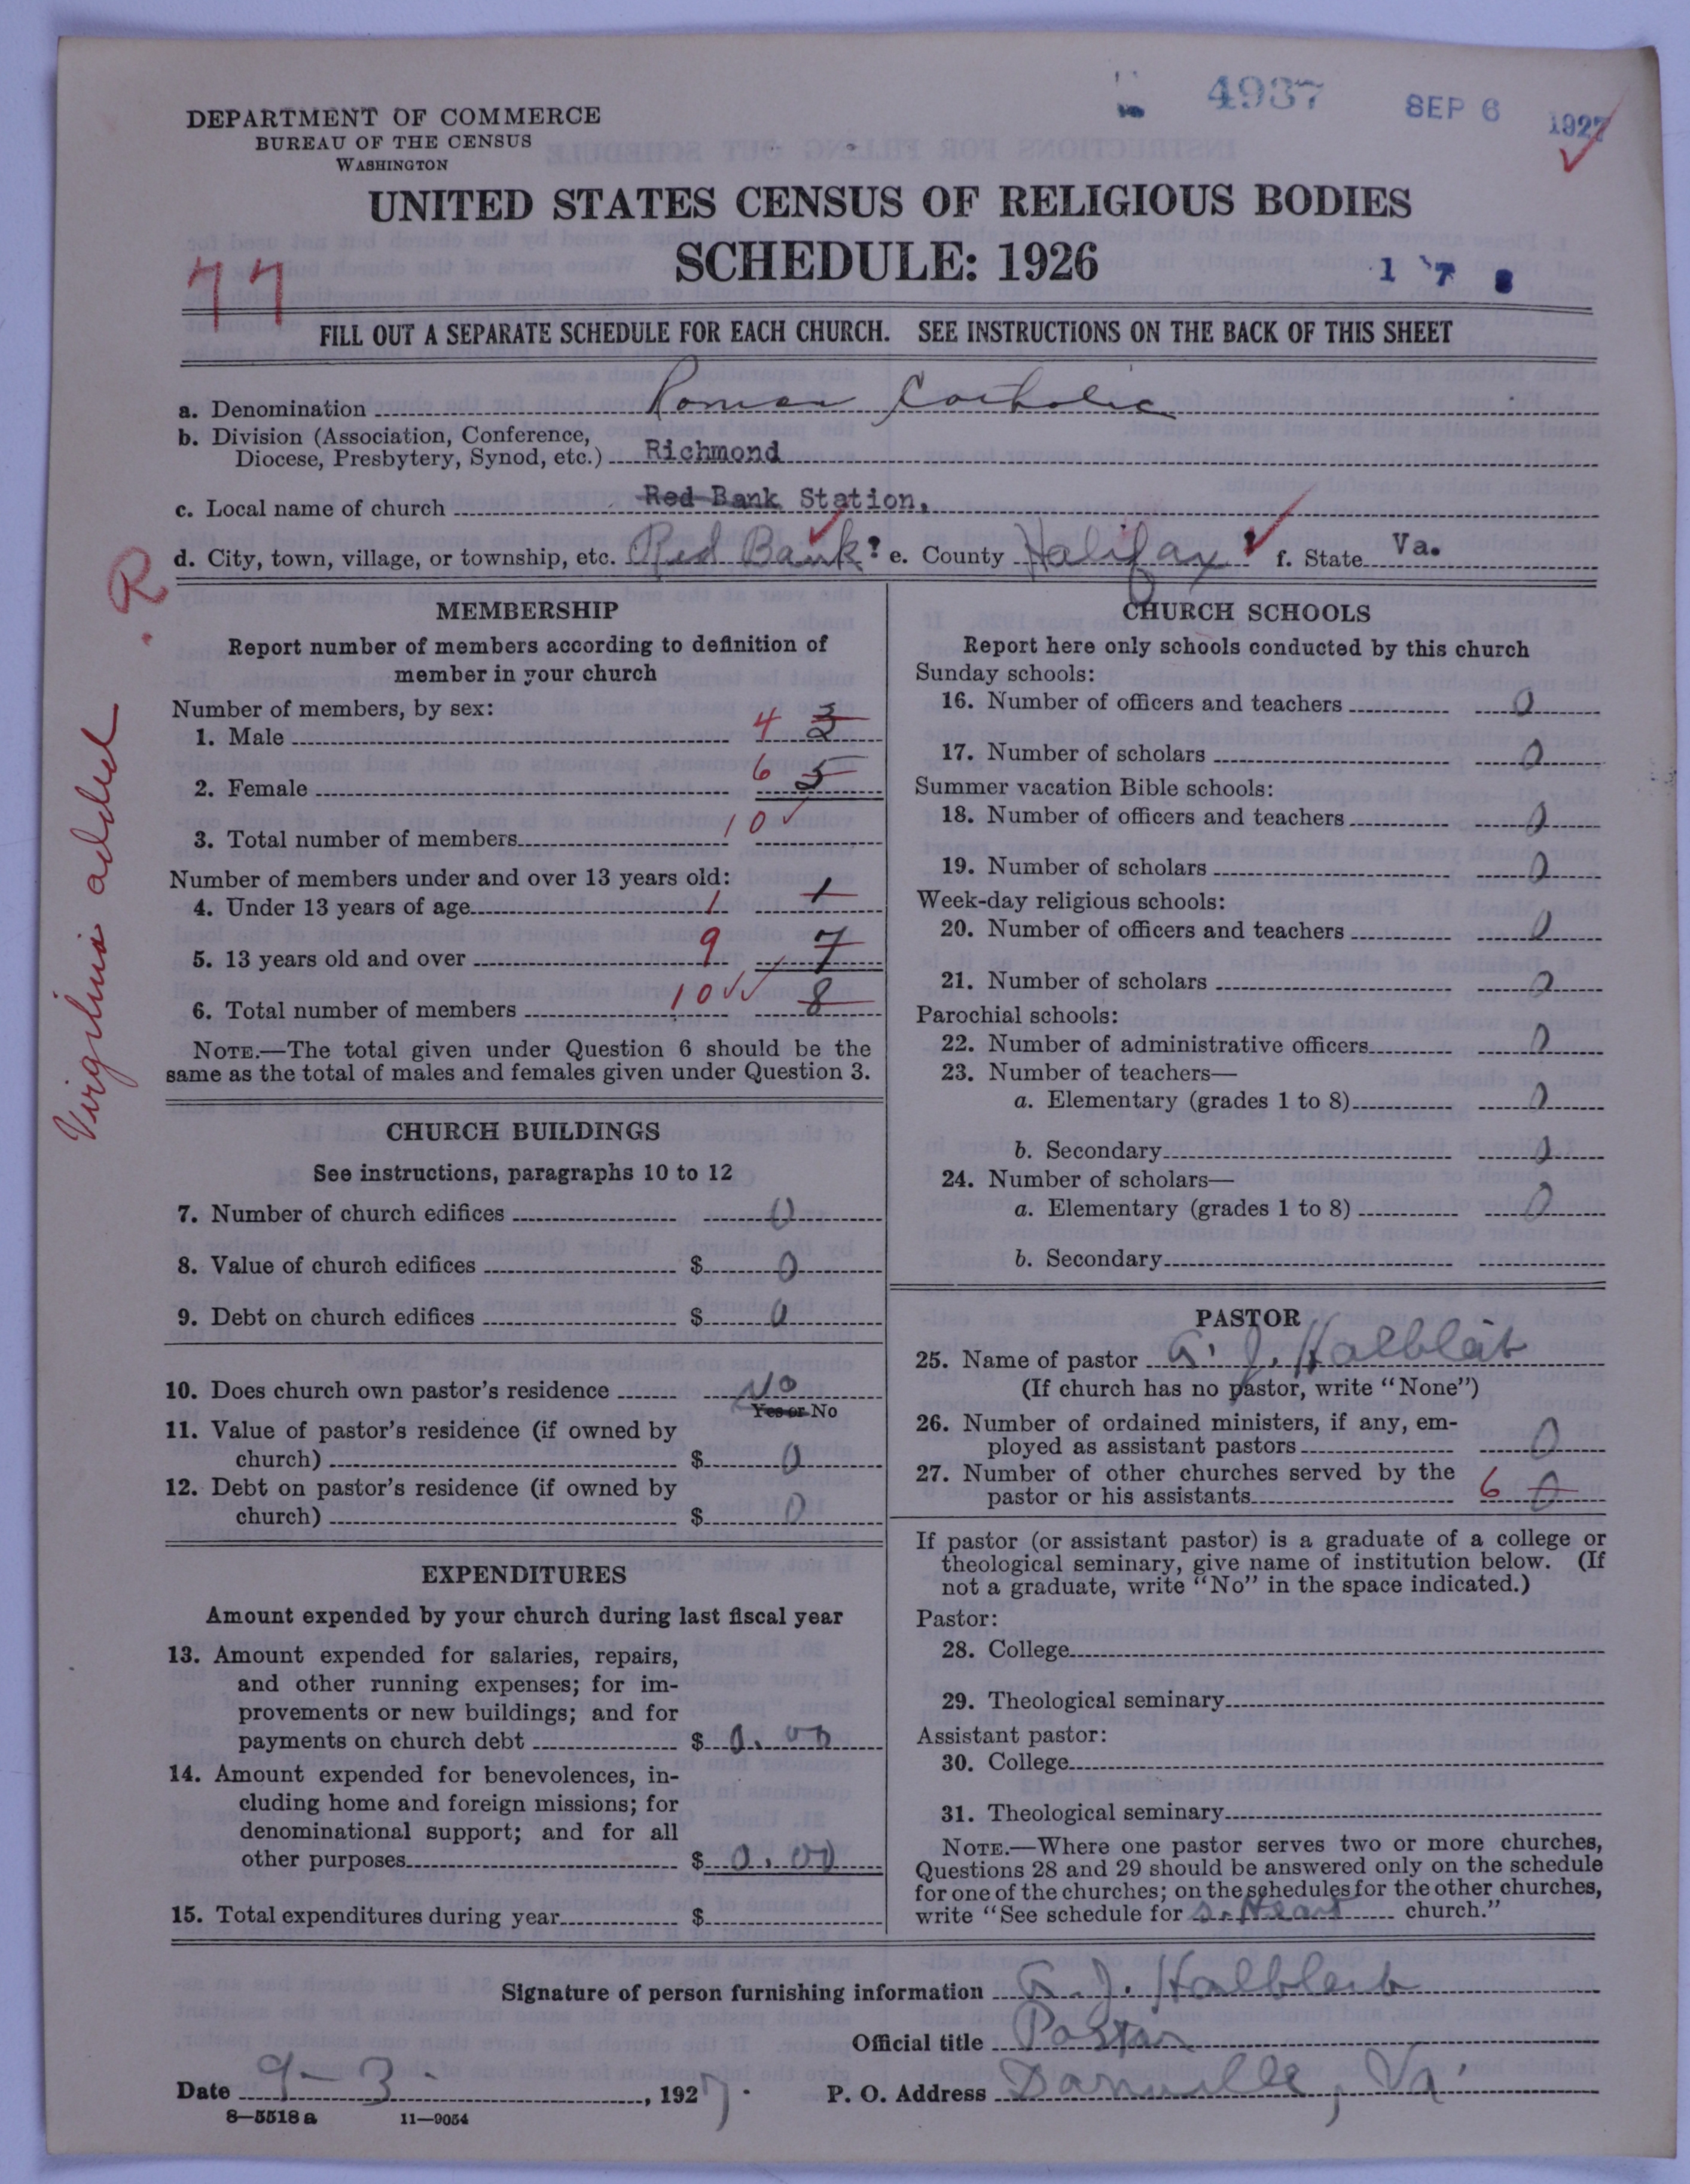 4937 SEP 6 1927
DEPARTMENT OF COMMERCE
BUREAU OF THE CENSUS
WASHINGTON
UNITED STATES CENSUS OF RELIGIOUS BODIES
SCHEDULE: 1926
77
1 7 8
FILL OUT A SEPARATE SCHEDULE FOR EACH CHURCH. SEE INSTRUCTIONS ON THE BACK OF THIS SHEET
a. Denomination Roman Catholic
b. Division (Association, Conference,
Diocese, Presbytery, Synod, etc.) Richmond
c. Local name of church Red Bank Station.
d. City, town, village, or township, etc. Red Bank? e. County Halifax f. State Va.
Virgilina added R
MEMBERSHIP
Report number of members according to definition of
member in your church
Number of members, by sex:
1. Male 4 3 2
2. Female 6 5
3. Total number of members 10
Number of members under and over 13 years old:
4. Under 13 years of age 1 1
5. 13 years old and over 9 7
6. Total number of members 10 8
NOTE.—The total given under Question 6 should be the
same as the total of males and females given under Question 3.
CHURCH BUILDINGS
See instructions, paragraphs 10 to 12
7. Number of church edifices 0
8. Value of church edifices $ 0
9. Debt on church edifices $ 0
10. Does church own pastor's residence No
Yes or No
11. Value of pastor's residence (if owned by
church) $ 0
12. Debt on pastor's residence (if owned by
church) $ 0
EXPENDITURES
Amount expended by your church during last fiscal year
13. Amount expended for salaries, repairs,
and other running expenses; for im-
provements or new buildings; and for
payments on church debt $ 0.00
14. Amount expended for benevolences, in-
cluding home and foreign missions; for
denominational support; and for all
other purposes $ 0.00
15. Total expenditures during year $
CHURCH SCHOOLS
Report here only schools conducted by this church
Sunday schools:
16. Number of officers and teachers 0
17. Number of scholars 0
Summer vacation Bible schools:
18. Number of officers and teachers 0
19. Number of scholars 0
Week-day religious schools:
20. Number of officers and teachers 0
21. Number of scholars 0
Parochial schools:
22. Number of administrative officers 0
23. Number of teachers—
a. Elementary (grades 1 to 8) 0
b. Secondary 0
24. Number of scholars—
a. Elementary (grades 1 to 8) 0
b. Secondary
PASTOR
25. Name of pastor G. J. Halbleib
(If church has no pastor, write "None")
26. Number of ordained ministers, if any, em-
ployed as assistant pastors 0
27. Number of other churches served by the
pastor or his assistants 6 0
If pastor (or assistant pastor) is a graduate of a college or
theological seminary, give name of institution below. (If
not a graduate, write "No" in the space indicated.)
Pastor:
28. College
29. Theological seminary
Assistant pastor:
30. College
31. Theological seminary
NOTE.—Where one pastor serves two or more churches,
Questions 28 and 29 should be answered only on the schedule
for one of the churches; on the schedules for the other churches,
write "See schedule for S. Heart church."
Signature of person furnishing information G. J. Halbleib
Official title Pastor
Date 9-3-, 1927. P. O. Address Danville, Va.
8—5518 a 11—9054